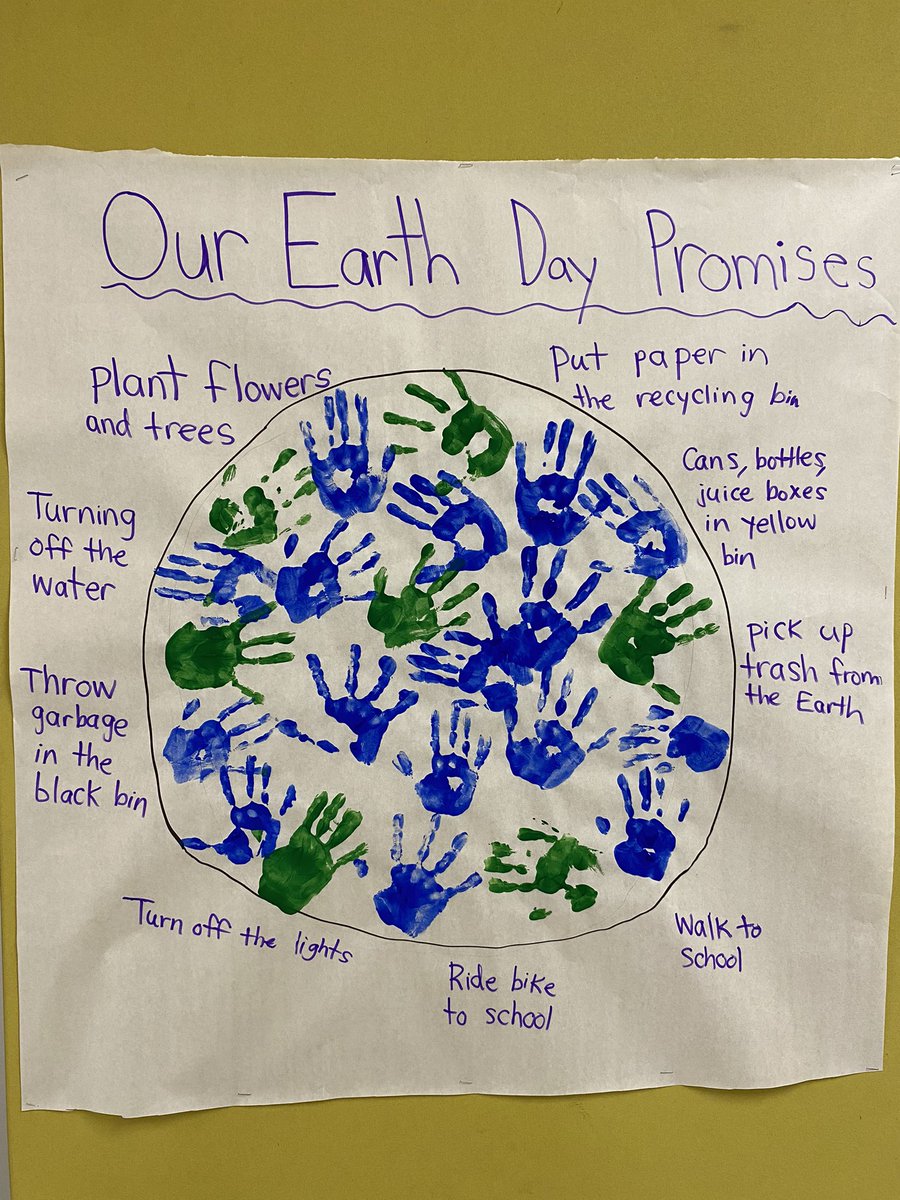 Our Earth Day Promises
Plant flowers
and trees
Put paper in
the recycling bin
Cans, bottles,
juice boxes
in yellow
bin
Turning
off the
water
pick up
trash from
the Earth
Throw
garbage
in the
black bin
Turn off the lights
Walk to
school
Ride bike
to school